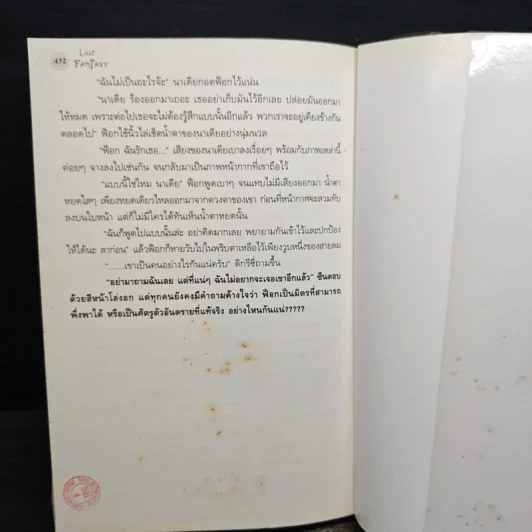 432
Last
Fantasy
"ฉันไม่เป็นอะไรจ้ะ" นาเดียกอดฟ็อกไว้แน่น
"นาเดีย ร้องออกมาเถอะ เธออย่าเก็บมันไว้อีกเลย ปล่อยมันออกมา
ให้หมด เพราะต่อไปเธอจะไม่ต้องรู้สึกแบบนั้นอีกแล้ว พวกเราจะอยู่เคียงข้างกัน
ตลอดไป" ฟ็อกใช้นิ้วไล่เช็ดน้ำตาของนาเดียอย่างนุ่มนวล
"ฟ็อก ฉันรักเธอ..." เสียงของนาเดียเบาลงเรื่อยๆ พร้อมกับภาพเหล่านี้
ค่อยๆ จางลงไปเช่นกัน จนกลับมาเป็นภาพหน้ากากที่เขาถือไว้
"แบบนี้ใช่ไหม นาเดีย" ฟ็อกพูดเบาๆ จนแทบไม่มีเสียงออกมา น้ำตา
หยดใสๆ เพียงหยดเดียวไหลออกมาจากดวงตาของเขา ก่อนที่หน้ากากจะสวมทับ
ลงบนใบหน้า แต่ก็ไม่มีใครได้ทันเห็นน้ำตาหยดนั้น
"ฉันก็พูดไปแบบนั้นล่ะ อย่าคิดมากเลย พยายามกันเข้าไว้และปกป้อง
ให้ได้นะ ลาก่อน" แล้วฟ็อกก็หายวับไปในพริบตาเหลือไว้เพียงวูบหนึ่งของสายลม
"......เขาเป็นคนอย่างไรกันแน่ครับ" ดีกรีซี่ถามขึ้น
"อย่ามาถามฉันเลย แต่ที่แน่ๆ ฉันไม่อยากจะเจอเขาอีกแล้ว" ซีนตอบ
ด้วยสีหน้าโล่งอก แต่ทุกคนยังคงมีคำถามค้างใจว่า ฟ็อกเป็นมิตรที่สามารถ
พึ่งพาได้ หรือเป็นศัตรูตัวอันตรายที่แท้จริง อย่างไหนกันแน่?????